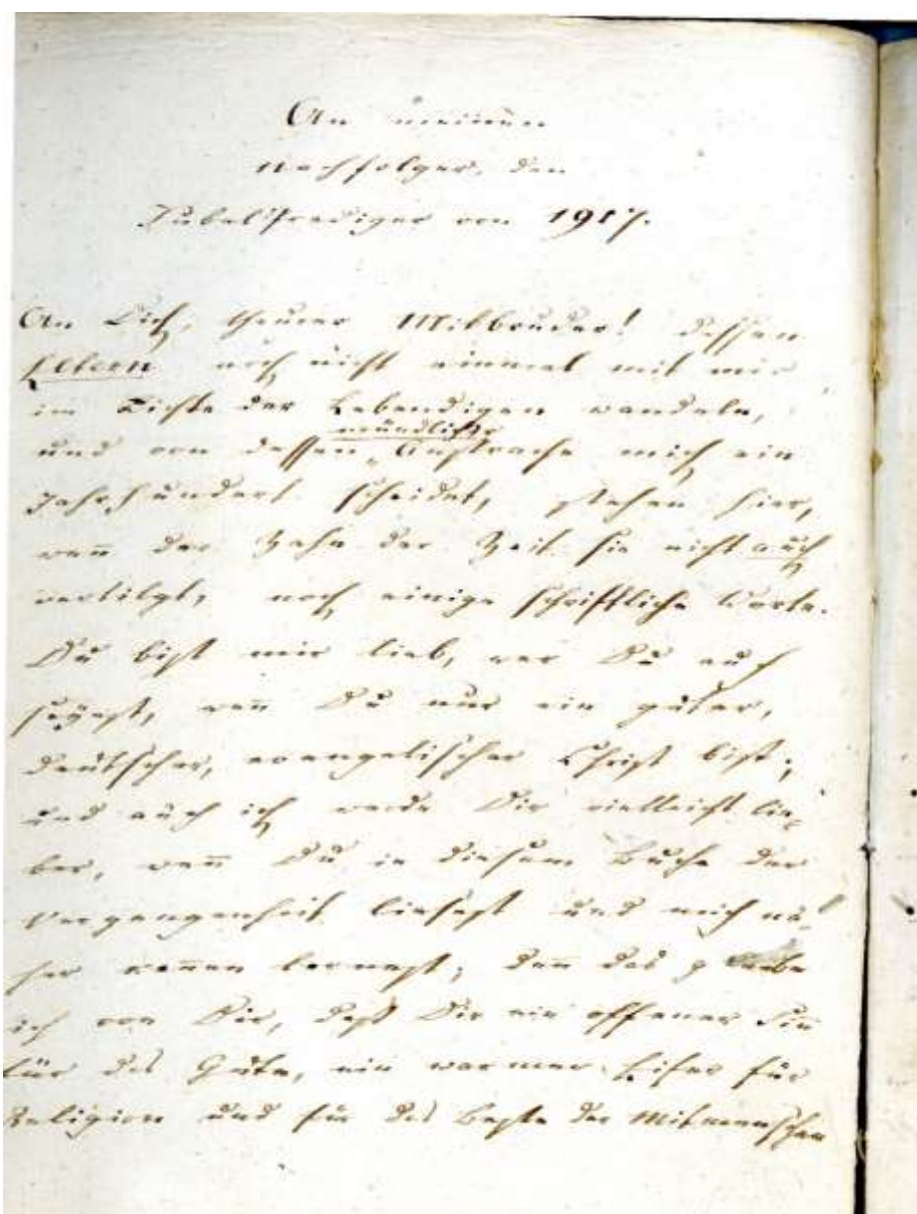 An meinen
Nachfolger, den
Jubelprediger von 1917.
An Dich, theurer Mitbruder! dessen
Eltern noch nicht einmal mit mir
im Lichte der Lebendigen wandeln,
mündlicher
und von dessen Ansprache mich ein
Jahrhundert scheidet, stehen hier,
wen̅ der Zahn der Zeit sie nicht auch
vertilgt, noch einige schriftliche Worte.
Du bist mir lieb, wer Du auch
seyest, wen̅ Du nur ein guter,
deutscher, evangelischer Christ bist;
und auch ich werde Dir vielleicht lie-
ber, wen̅ Du in diesem Buche der
Vergangenheit liesest und mich nä-
her kennen lernest; den̅ das glaube
ich von Dir, daß Dir ein offener Sin̅
für das Gute, ein warmer Eifer für
Religion und für das Beste der Mitmenschen